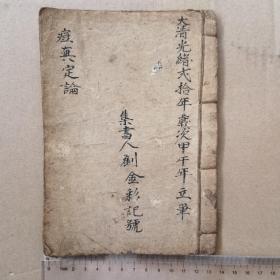 大清光緒弍拾年歲次甲午年立畢
集書人劉金彩記號
痘真定論